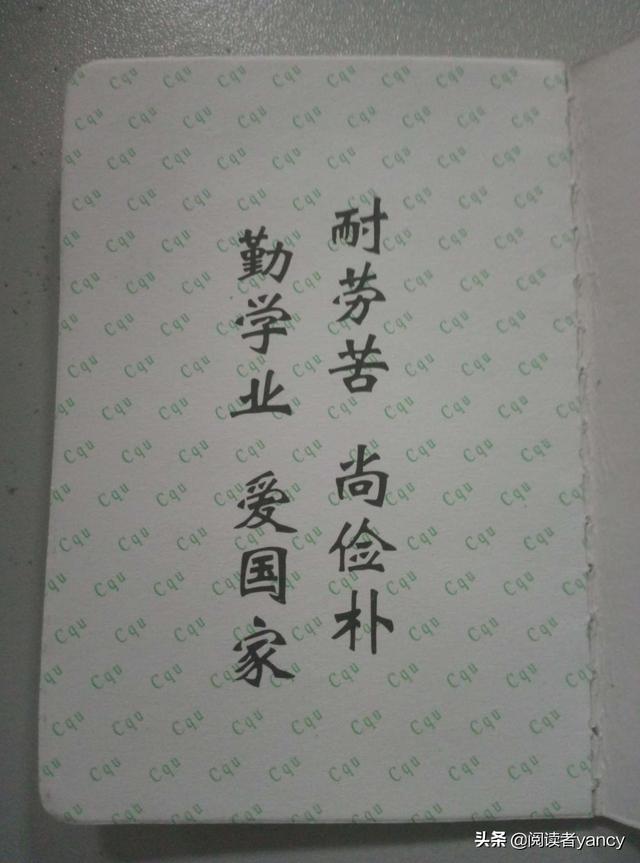 耐劳苦 尚俭朴
勤学业 爱国家
Cqu
头条 @阅读者yancy